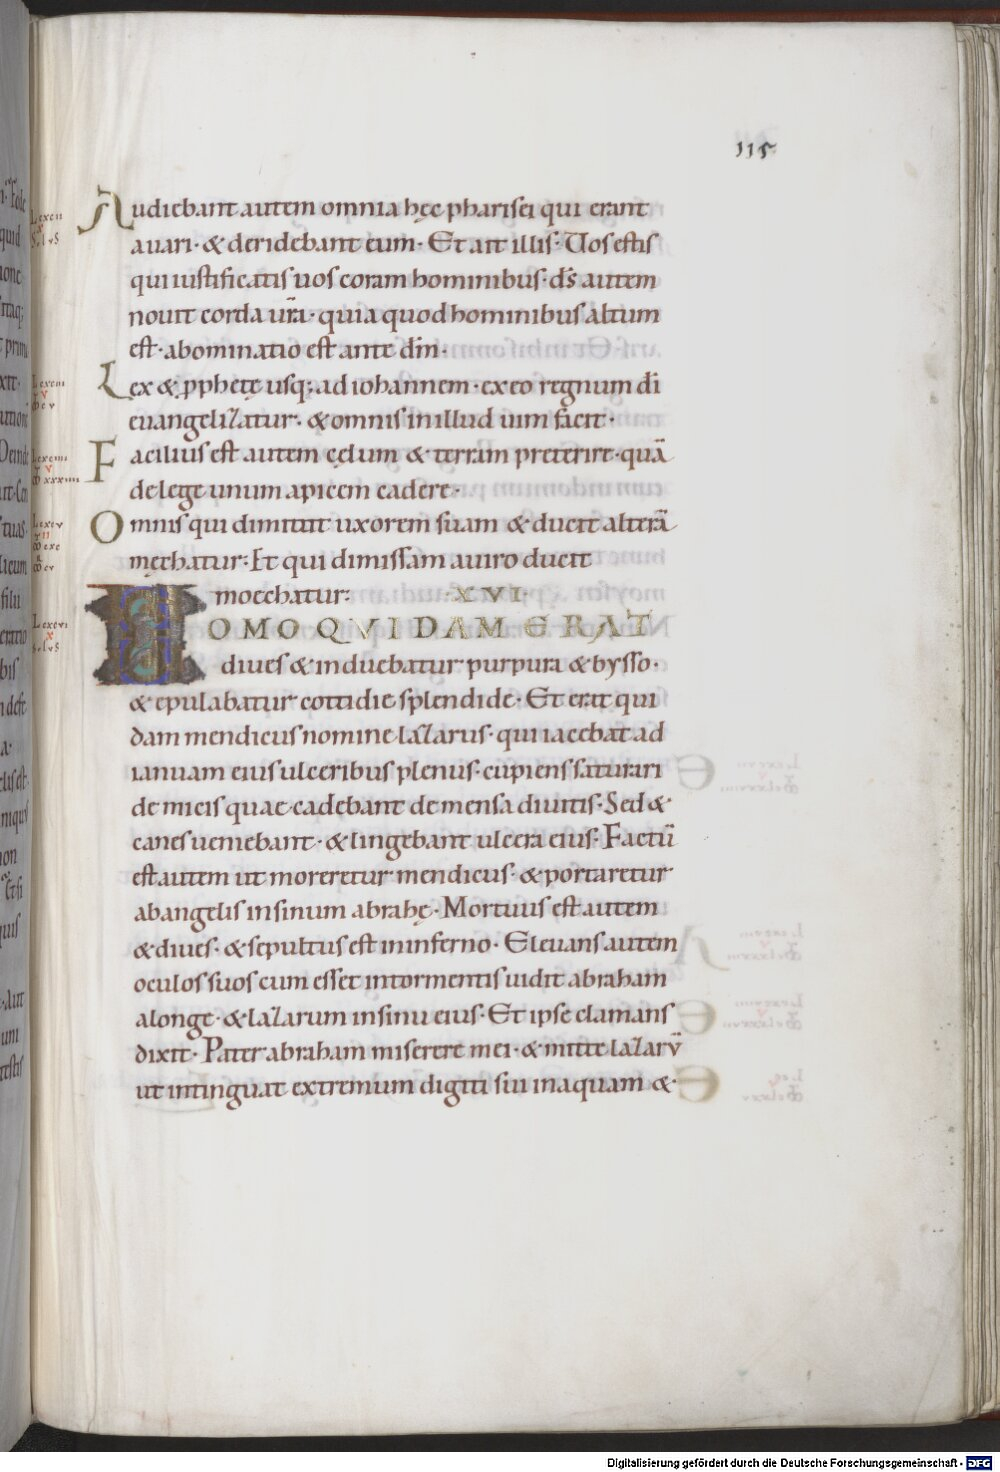 115
Audiebant autem omnia hęc pharisei qui erant
auari· & deridebant eum· Et ait illis· Uos estis
qui iustificatis uos coram hominibus· d̄s autem
nouit corda ur̄a· quia quod hominibus altum
est· abominatio est ante dm̄·
Lex & ꝓphetę usq; ad iohannem· ex eo regnum dī
euangelizatur· & omnis in illud uim facit·
Facilius est autem cęlum & terram preterire· quā
de lege unum apicem cadere·
Omnis qui dimittit uxorem suam & ducit alterā
męchatur· Et qui dimissam a uiro ducit
moechatur· ·XVI·
HOMO QVIDAM ERAT
diues & induebatur purpura & bysso·
& epulabatur cottidie splendide· Et erat qui
dam mendicus nomine lazarus· qui iacebat ad
ianuam eius ulceribus plenus· cupiens saturari
de micis quae cadebant de mensa diuitis· Sed &
canes ueniebant· & lingebant ulcera eius· Factū
est autem ut moreretur mendicus· & portaretur
ab angelis in sinum abrahę· Mortuus est autem
& diues· & sepultus est in inferno· Eleuans autem
oculos suos cum esset in tormentis uidit abraham
a longe· & lazarum in sinu eius· Et ipse clamans
dixit· Pater abraham miserere mei· & mitte lazarv̄
ut intinguat extremum digiti sui in aquam &·
Digitalisierung gefördert durch die Deutsche Forschungsgemeinschaft - DFG